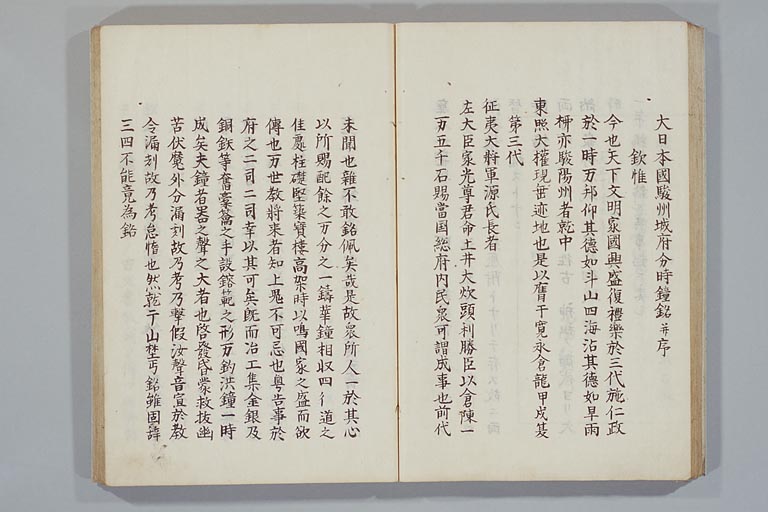 大日本國駿州城府分時鐘銘并序
欽惟
今也天下文明家國興盛復禮樂於三代施仁政
於一時万邦仰其德如斗山四海沾其德如早雨
栟亦駿陽州者乾中
東照大權現垂迹地也是以膺于寛永倉龍甲戌夏
第三代
征夷大將軍源氏長者
左大臣家光尊君命土井大炊頭利勝臣以倉陳一
一万五千石賜當国総府内民衆可謂成事也前代
未聞也雖不敢銘佩矣哉是故衆所人一於其心
以所賜配餘之万分之一鑄華鐘相収四行道之
佳處柱礎堅築寶樓高架時以鳴國家之盛而欲
傳也万世教將来者知上恩不可忘也粤告事於
府之二司二司幸以其可矣既而冶工集金銀及
銅鉄等奮槖籥之手設鎔範之形万鈞洪鐘一時
成矣夫鐘者器之聲之大者也啓發昏蒙救拔幽
苦伏冀外分漏刻故乃考乃擊假汝聲音宣於教
令漏刻故乃考怠惰也然乾亍山埜丐銘雖固諱
三四不能竟為銘